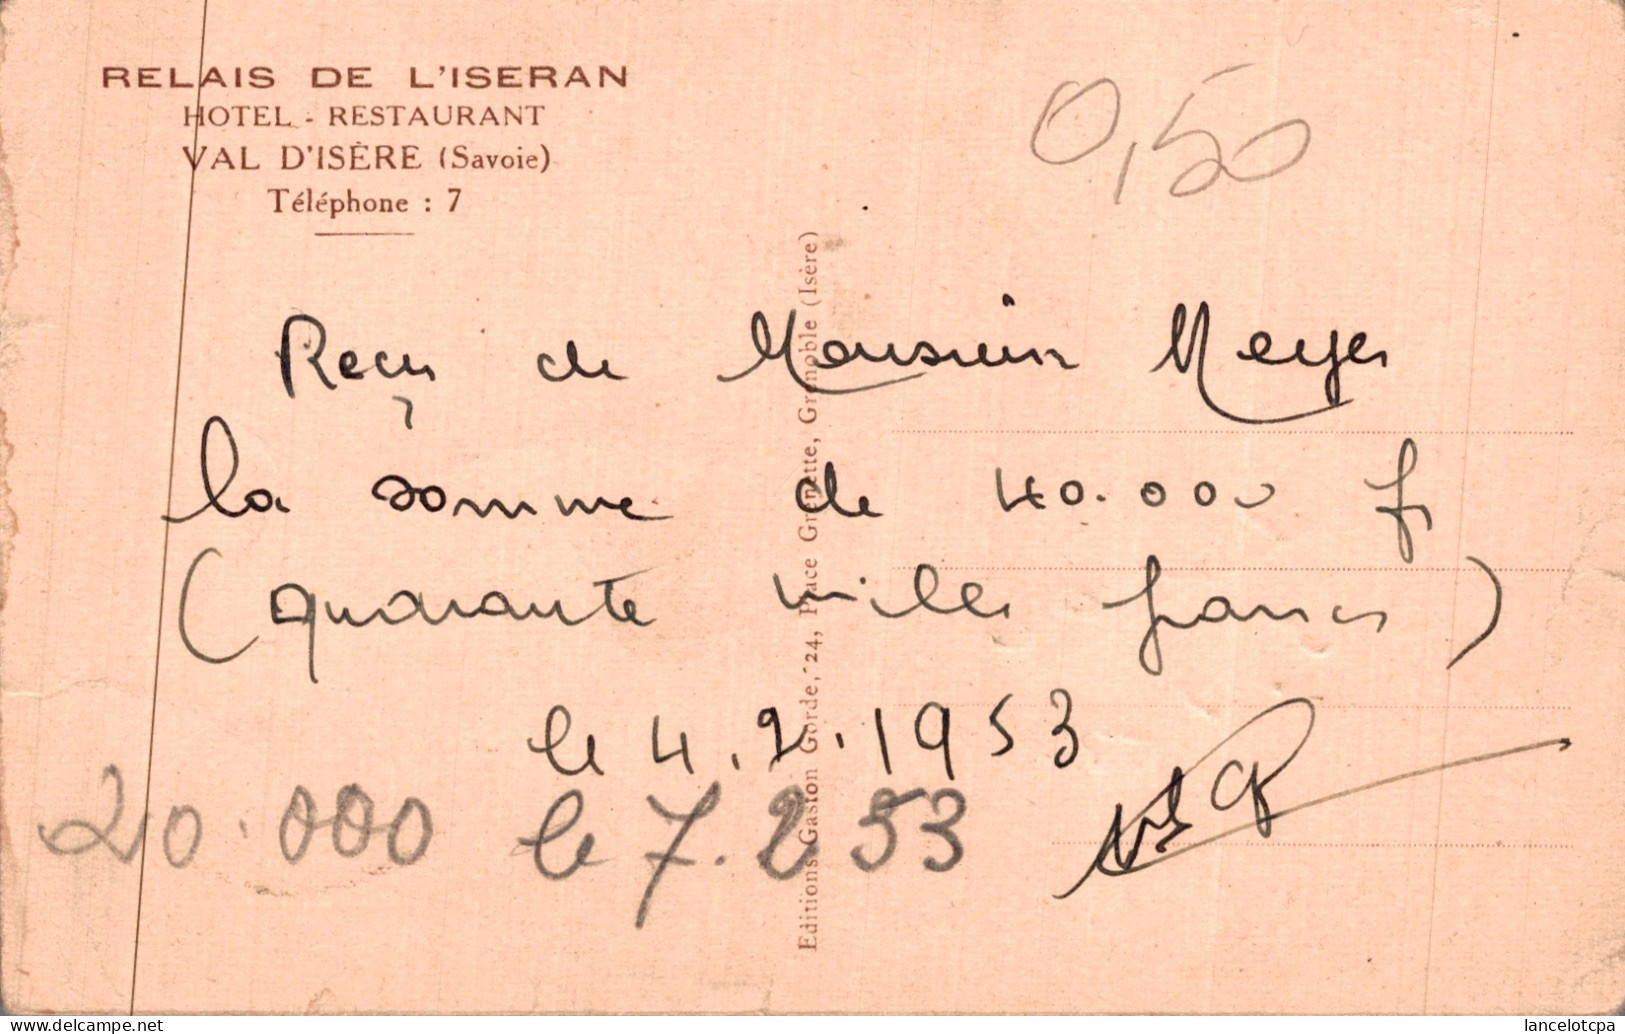 RELAIS DE L'ISERAN
HOTEL - RESTAURANT
VAL D'ISÈRE (Savoie)
Téléphone : 7
0,50
Reçu de Monsieur Meyer
la somme de 40.000 f
(quarante mille francs)
le 4.2.1953
20.000 le 7.2 53
Editions Gaston Gorde, 24, Place Grenette, Grenoble (Isère)
lancelotcpa
www.delcampe.net